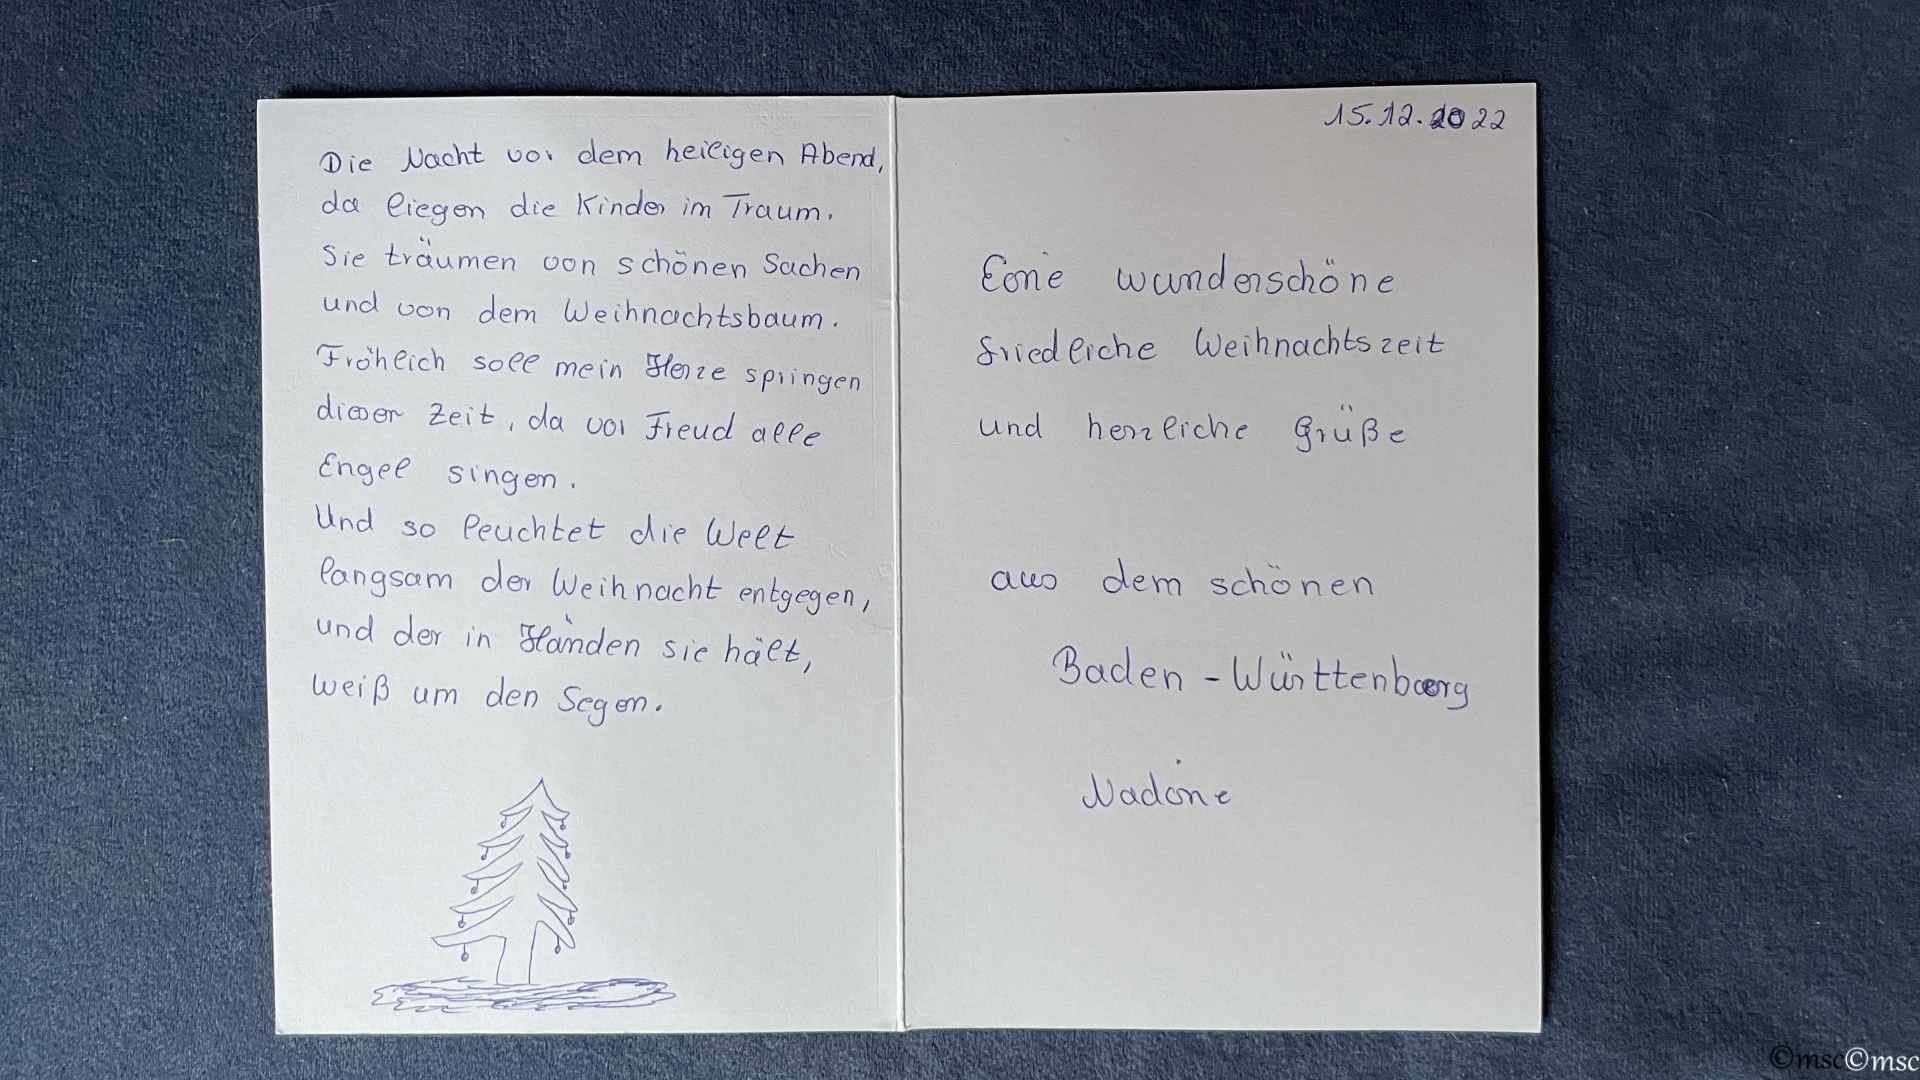 Die Nacht vor dem heiligen Abend,
da liegen die Kinder im Traum.
Sie träumen von schönen Sachen
und von dem Weihnachtsbaum.
Fröhlich soll mein Herze springen
dieser Zeit, da vor Freud alle
Engel singen.
Und so leuchtet die Welt
langsam der Weihnacht entgegen,
und der in Händen sie hält,
weiß um den Segen.
15.12.2022
Eine wunderschöne
friedliche Weihnachtszeit
und herzliche Grüße
aus dem schönen
Baden-Württenberg
Nadine
©msc©msc